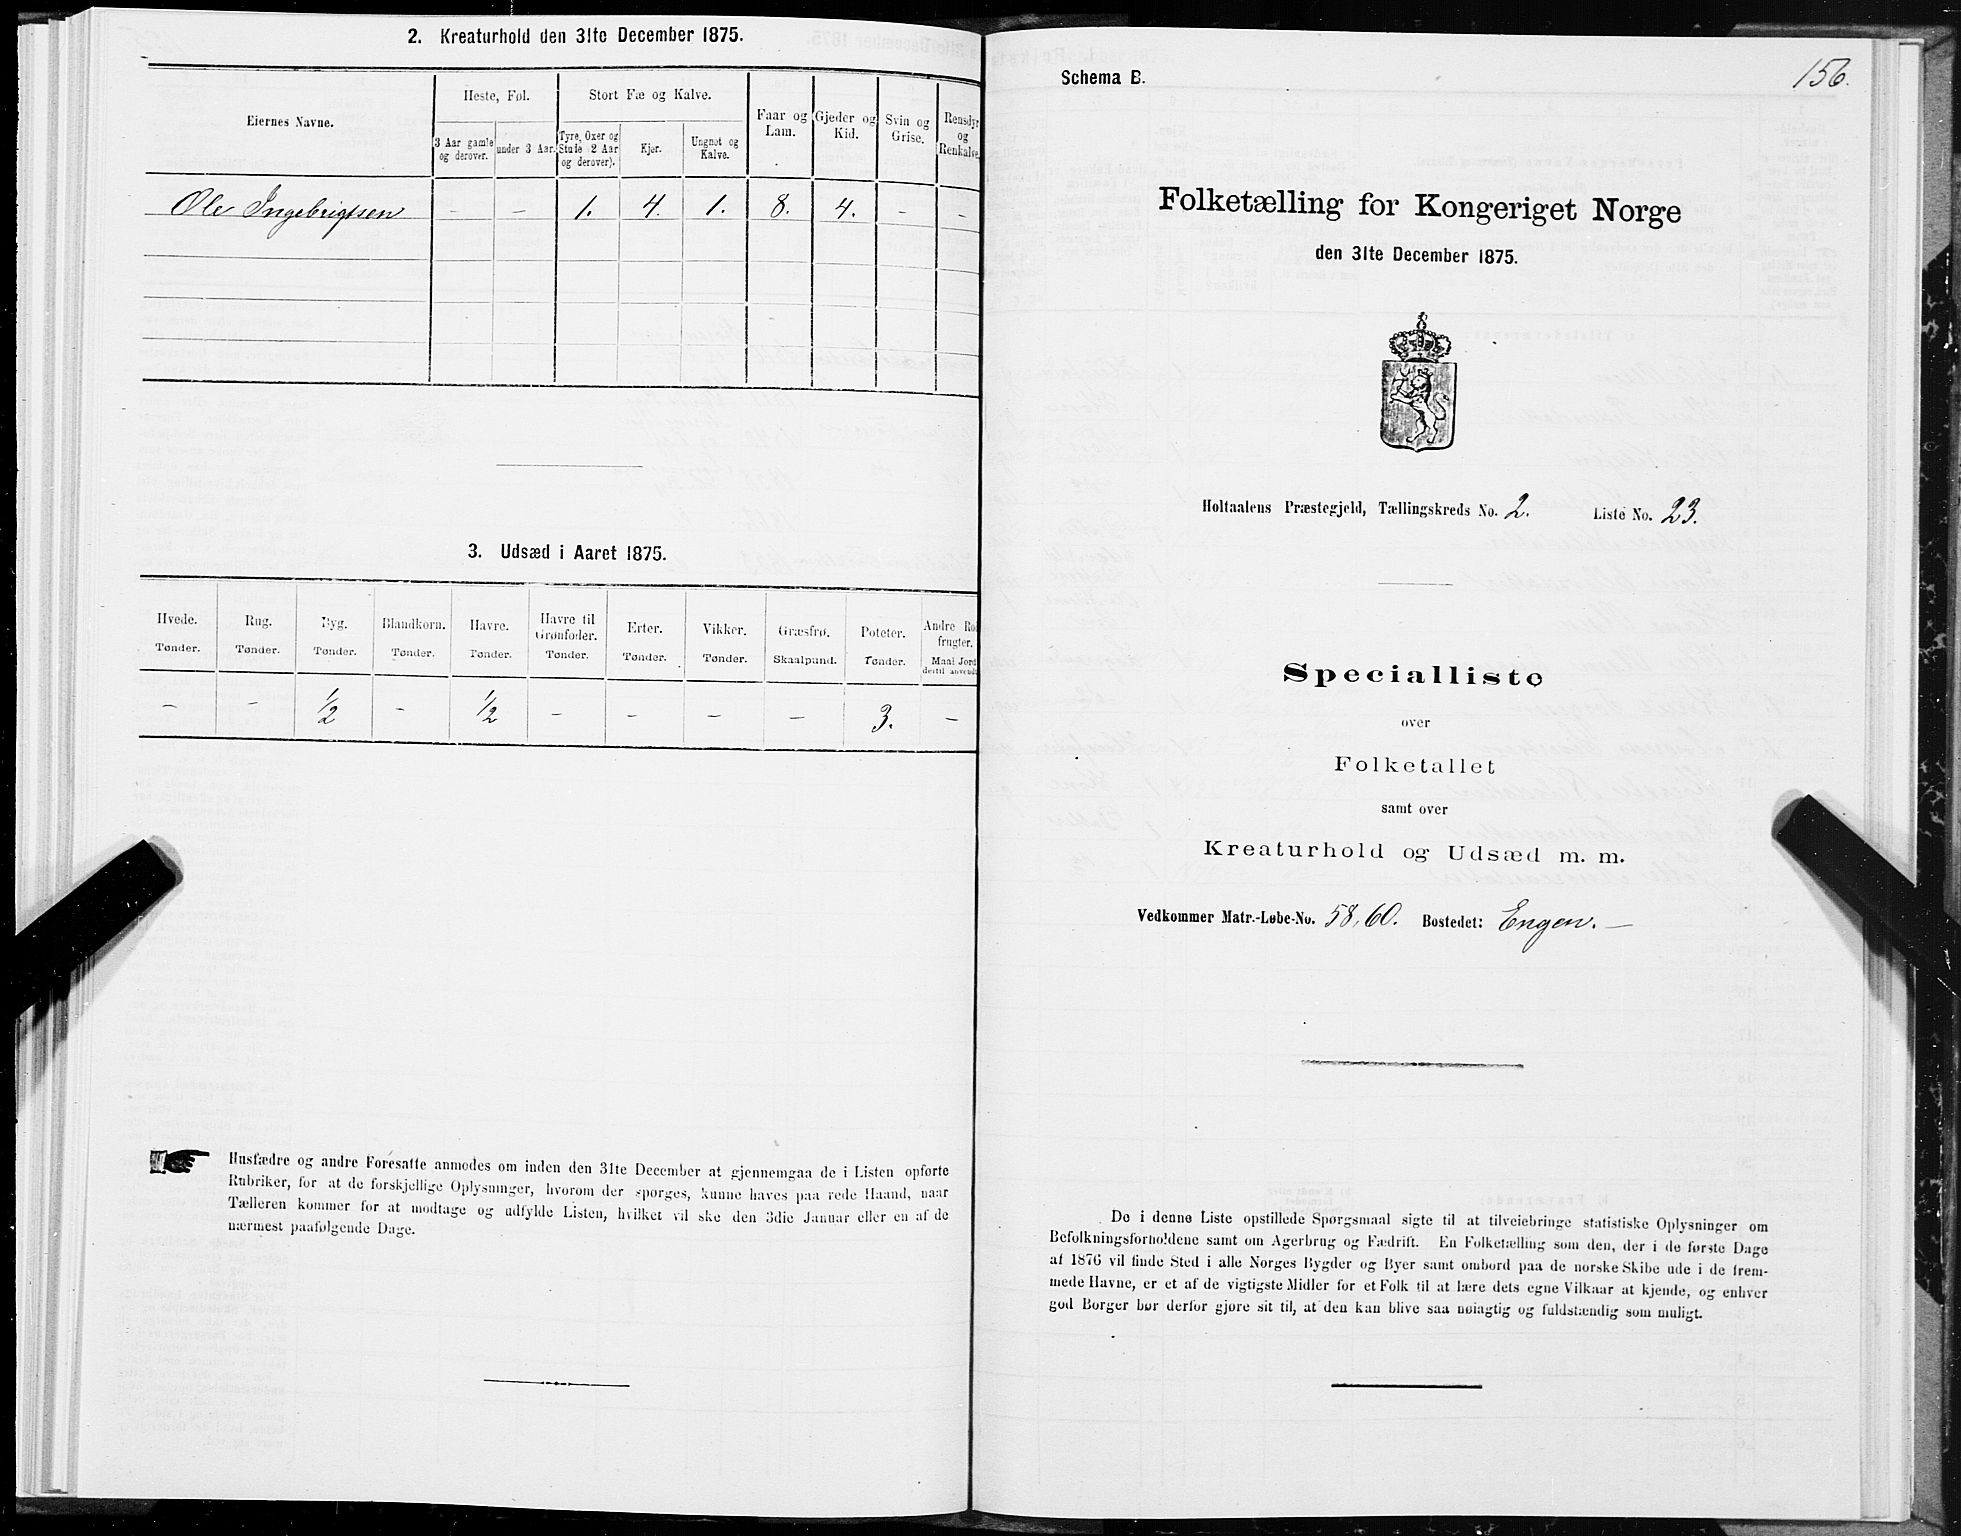 2. Kreaturhold den 31te December 1875.
Eiernes Navne.
Heste, Føl.
Stort Fæ og Kalve.
Faar og Lam.
Gjeder og Kid.
Svin og Grise.
Rensdyr og Renkalve.
3 Aar gamle og derover.
under 3 Aar.
Tyre, Oxer og Stude (2 Aar og derover).
Kjør.
Ungnøt og Kalve.
Ole Ingebrigtsen - - 1. 4. 1. 8. 4. - -
3. Udsæd i Aaret 1875.
Hvede. Tønder.
Rug. Tønder.
Byg. Tønder.
Blandkorn.
Havre. Tønder.
Havre til Grønfoder. Tønder.
Erter. Tønder.
Vikker. Tønder.
Græsfrø. Skaalpund.
Poteter. Tønder.
Andre Ro frugter. Maal Jord dertil anvendt
- - 1/2 - 1/2 - - - - 3. -
Husfædre og andre Foresatte anmodes om inden den 31te December at gjennemgaa de i Listen opførte
Rubriker, for at de forskjellige Oplysninger, hvorom der spørges, kunne haves paa rede Haand, naar
Tælleren kommer for at modtage og udfylde Listen, hvilket vil ske den 3die Januar eller en af de
nærmest paafølgende Dage.
Schema B.
156.
Folketælling for Kongeriget Norge
den 31te December 1875.
Holtaalens Præstegjeld, Tællingskreds No. 2. Liste No. 23.
Specialliste
over
Folketallet
samt over
Kreaturhold og Udsæd m. m.
Vedkommer Matr.-Løbe-No. 58, 60. Bostedet: Engen. —
De i denne Liste opstillede Spørgsmaal sigte til at tilveiebringe statistiske Oplysninger om
Befolkningsforholdene samt om Agerbrug og Fædrift. En Folketælling som den, der i de første Dage
af 1876 vil finde Sted i alle Norges Bygder og Byer samt ombord paa de norske Skibe ude i de frem-
mede Havne, er et af de vigtigste Midler for et Folk til at lære dets egne Vilkaar at kjende, og enhver
god Borger bør derfor gjøre sit til, at den kan blive saa nøiagtig og fuldstændig som muligt.